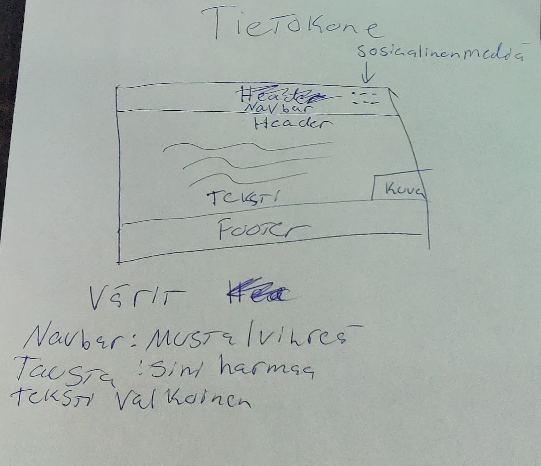 Tietokone
sosiaalinenmedia
Header
Navbar
Header
Teksti
Kuva
Footer
Värit
Navbar: Musta/vihreä
Tausta: Sini harmaa
Teksti Valkoinen